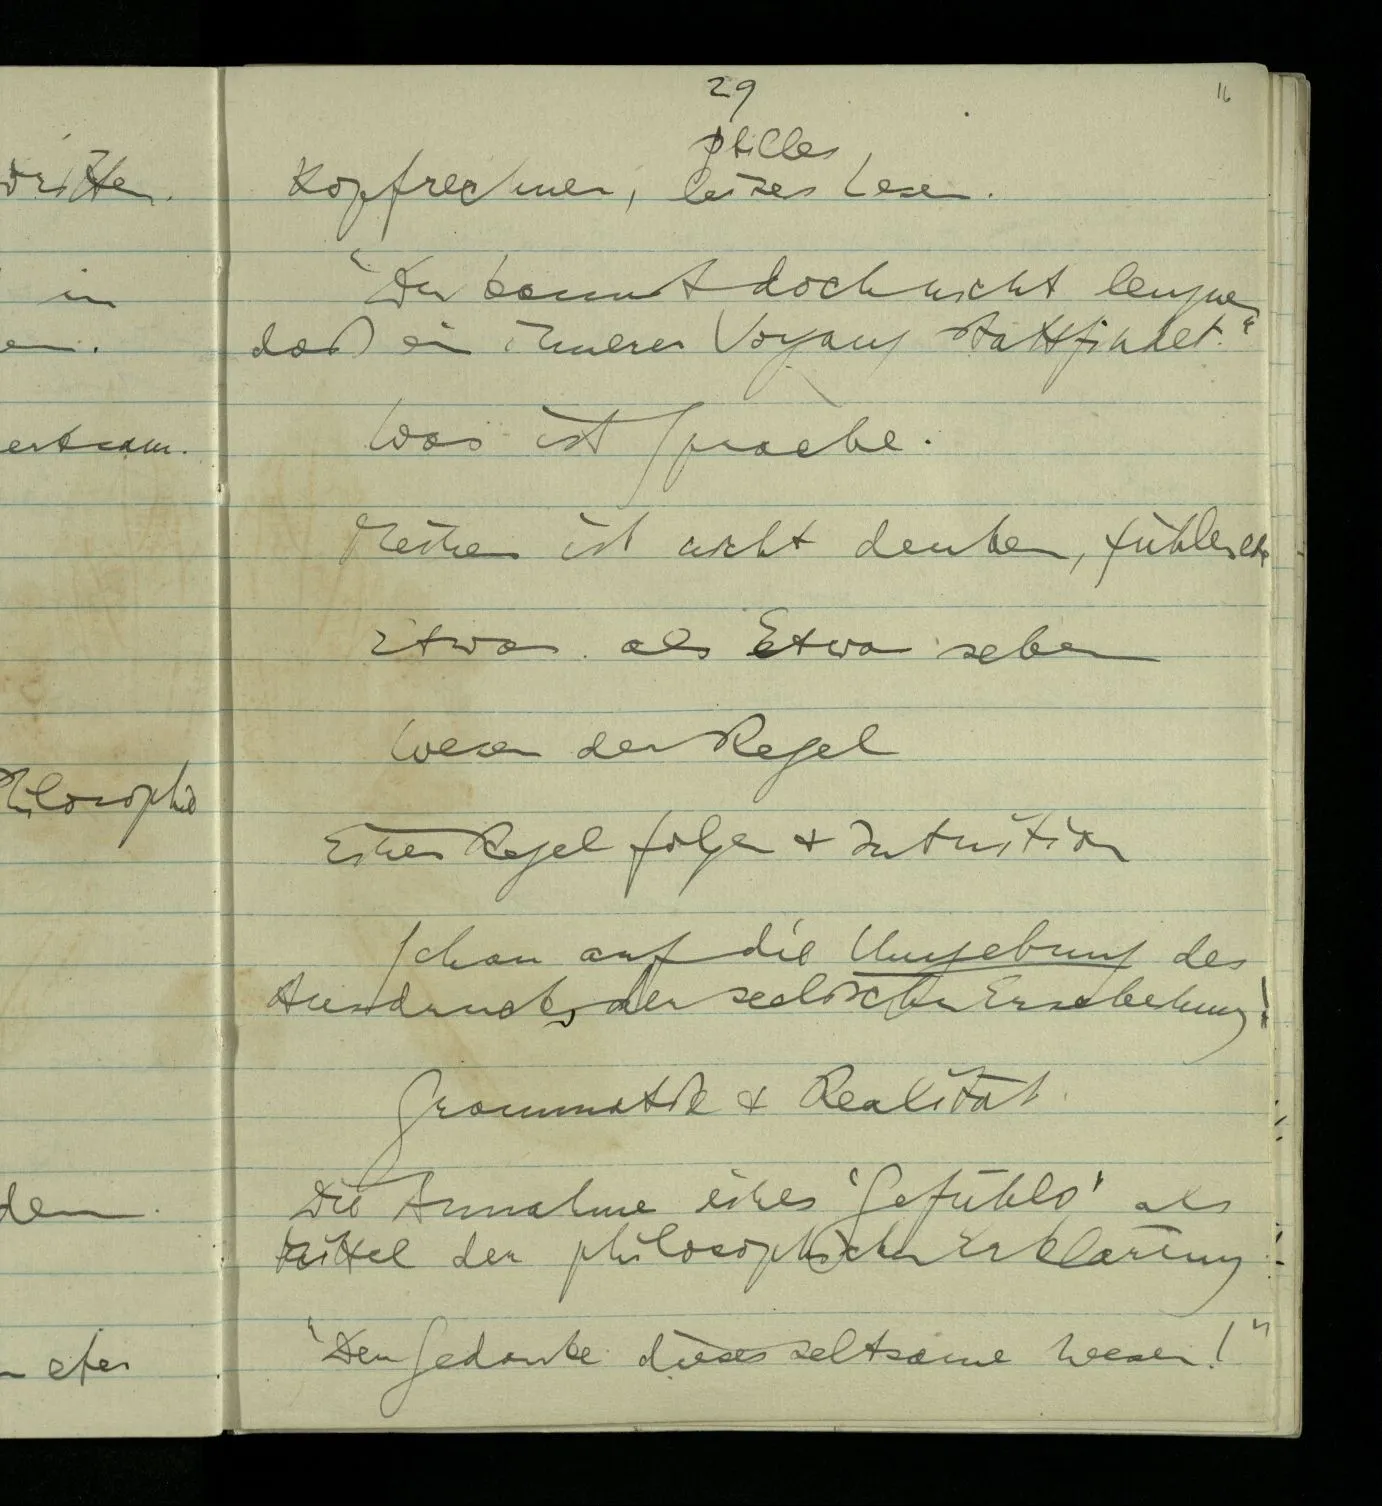 29
16
stilles
Kopfrechnen, leises Lesen.
"Du kannst doch nicht leugnen
daß ein innerer Vorgang stattfindet."
Was ist Sprache.
Meinen ist nicht denken, fühlen etc
Etwas als Etwas sehen
Wesen der Regel
Einer Regel folgen & Intuition
Schau auf die Umgebung des
Ausdrucks der seelischen Erscheinung!
Grammatik & Realität.
Die Annahme eines 'Gefühls' als
Mittel der philosophischen Erklärung
"Der Gedanke dieses seltsame Wesen!"
dritten.
in
en.
Philosophie
den.